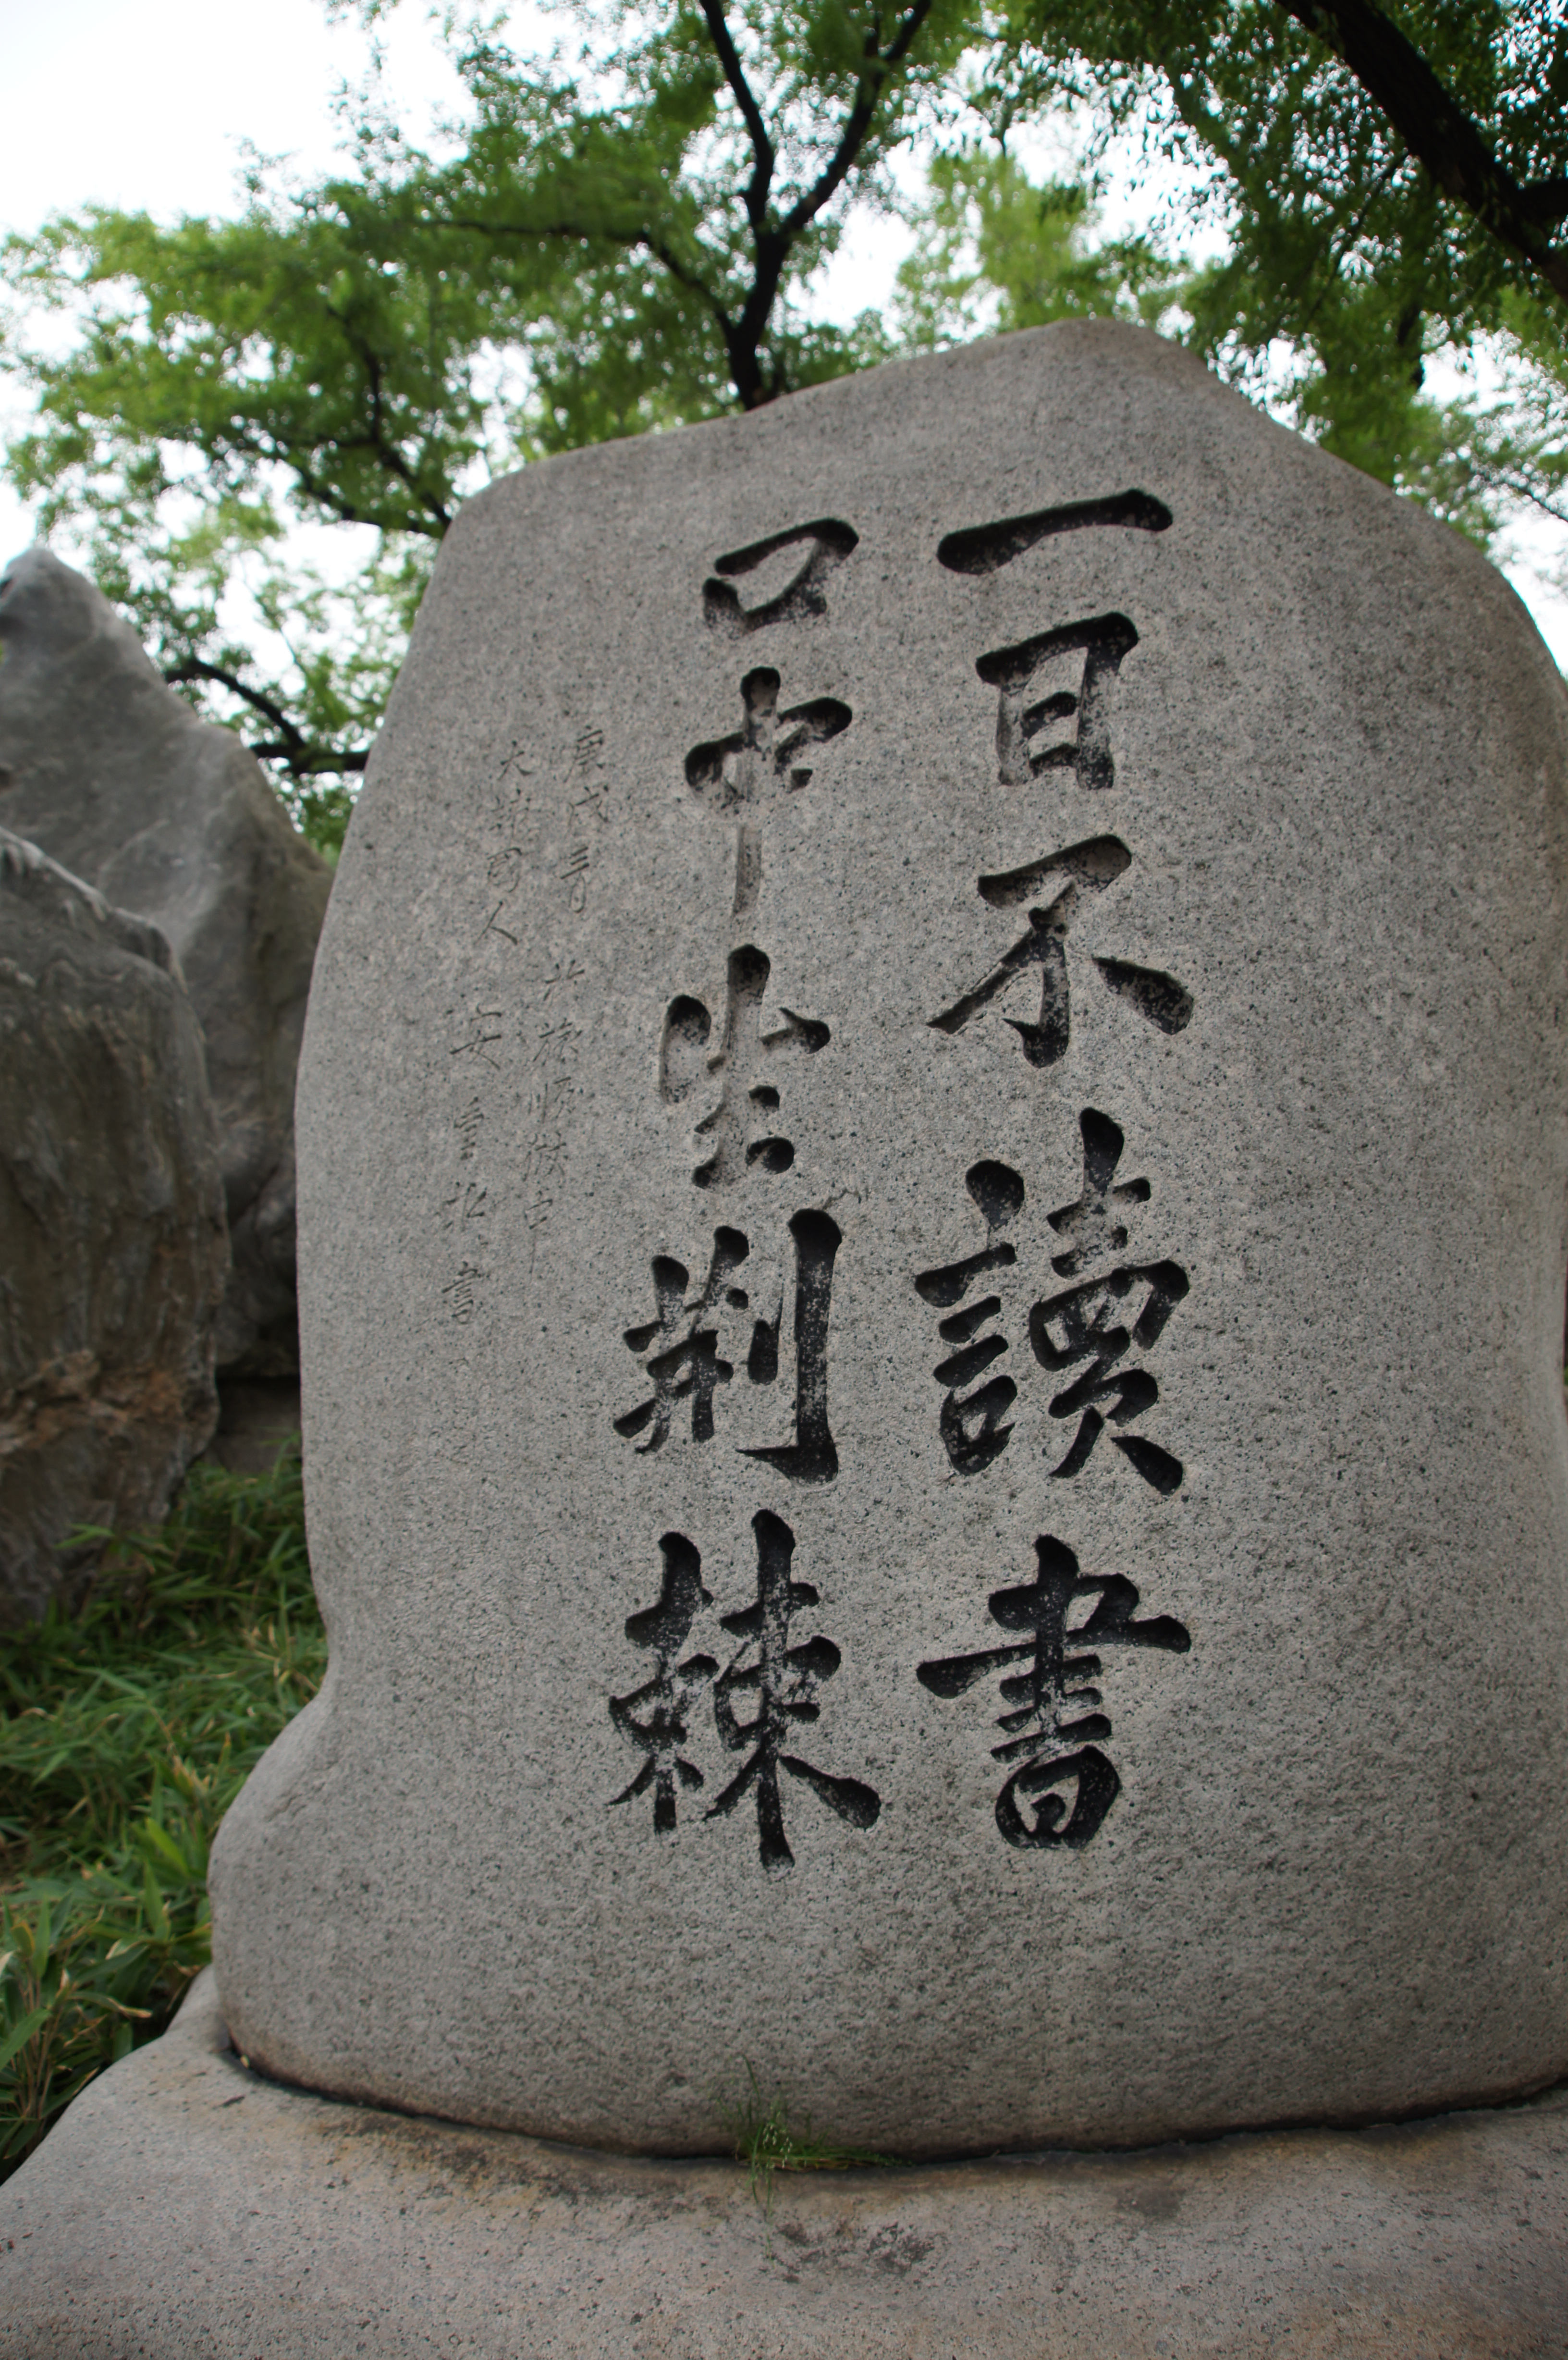 一日不讀書
口中生荊棘
庚戌三月 於旅順獄中
大韓國人 安重根 書